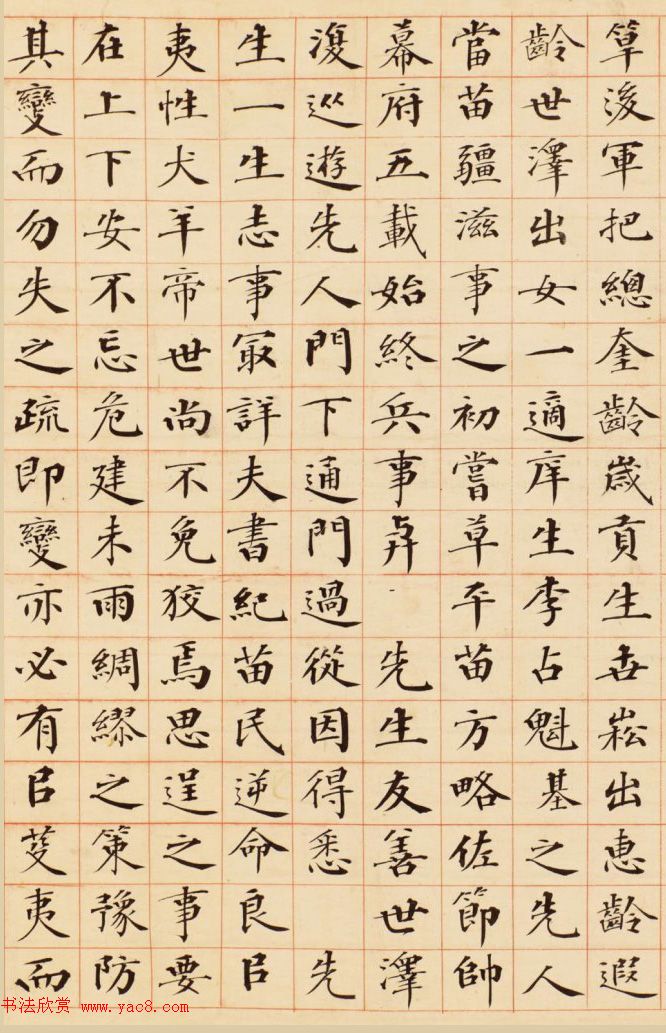 草後軍把總奎齡歲貢生世崧出惠齡遐
齡世澤出女一適庠生李占魁基之先人
當苗疆滋事之初嘗草平苗方略佐節帥
幕府五載始終兵事與先生友善世澤
復巡遊先人門下通門過從因得悉先
生一生志事最詳夫書紀苗民逆命良以
夷性犬羊帝世尚不免狡焉思逞之事要
在上下安不忘危建未雨綢繆之策豫防
其變而勿失之疏即變亦必有以芟夷而
书法欣赏 www.yac8.com